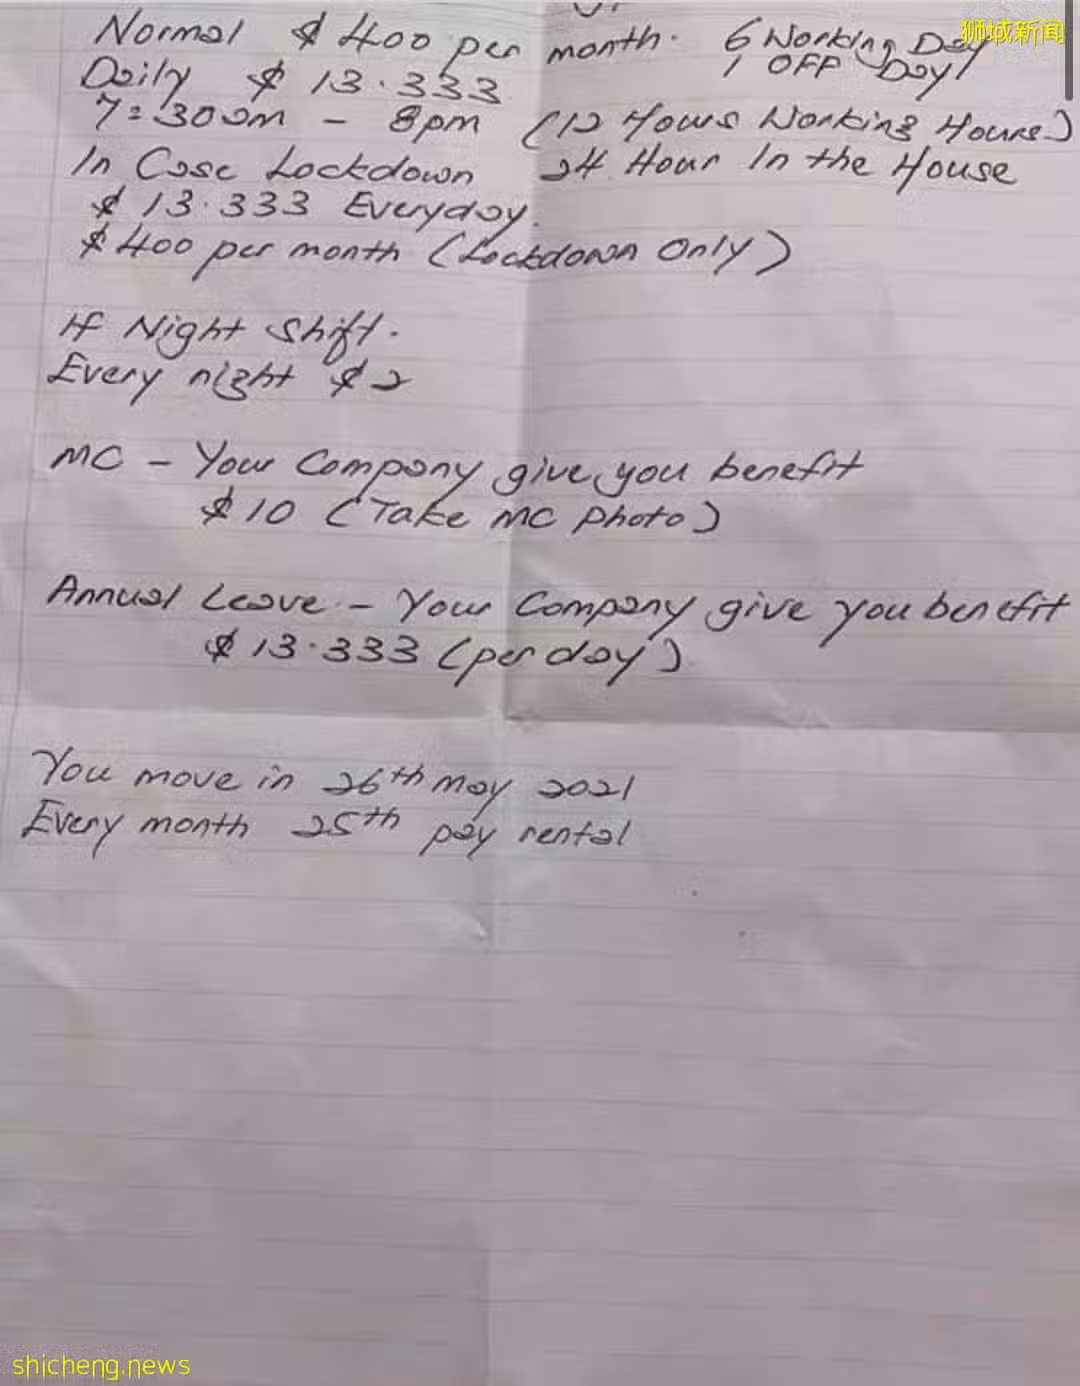 Normal $400 per month. 6 Working Day
1 OFF Day
狮城新闻
Daily $13.333
7:30am - 8pm (12 Hours Working Hours)
In Case Lockdown 24 Hour In the House
$13.333 Everyday.
$400 per month (Lockdown Only)
If Night Shift.
Every night $2
MC - Your Company give you benefit
$10 (Take MC Photo)
Annual Leave - Your Company give you benefit
$13.333 (per day)
You move in 26th may 2021
Every month 25th pay rental
shicheng.news